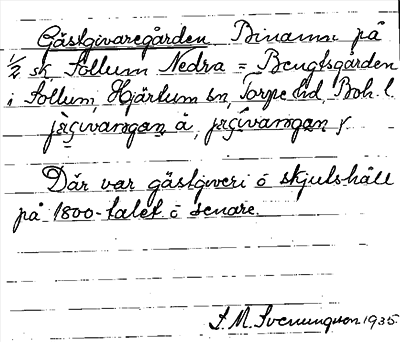 Gästgivaregården Binamn på
1/2 sk. Sollum Nedra = Bengtsgården
i Sollum, Hjärtum sn, Torpe hd, Boh. l.
Där var gästgiveri o skjutshåll
på 1800-talet o senare.
S. M. Svenungson 1935.